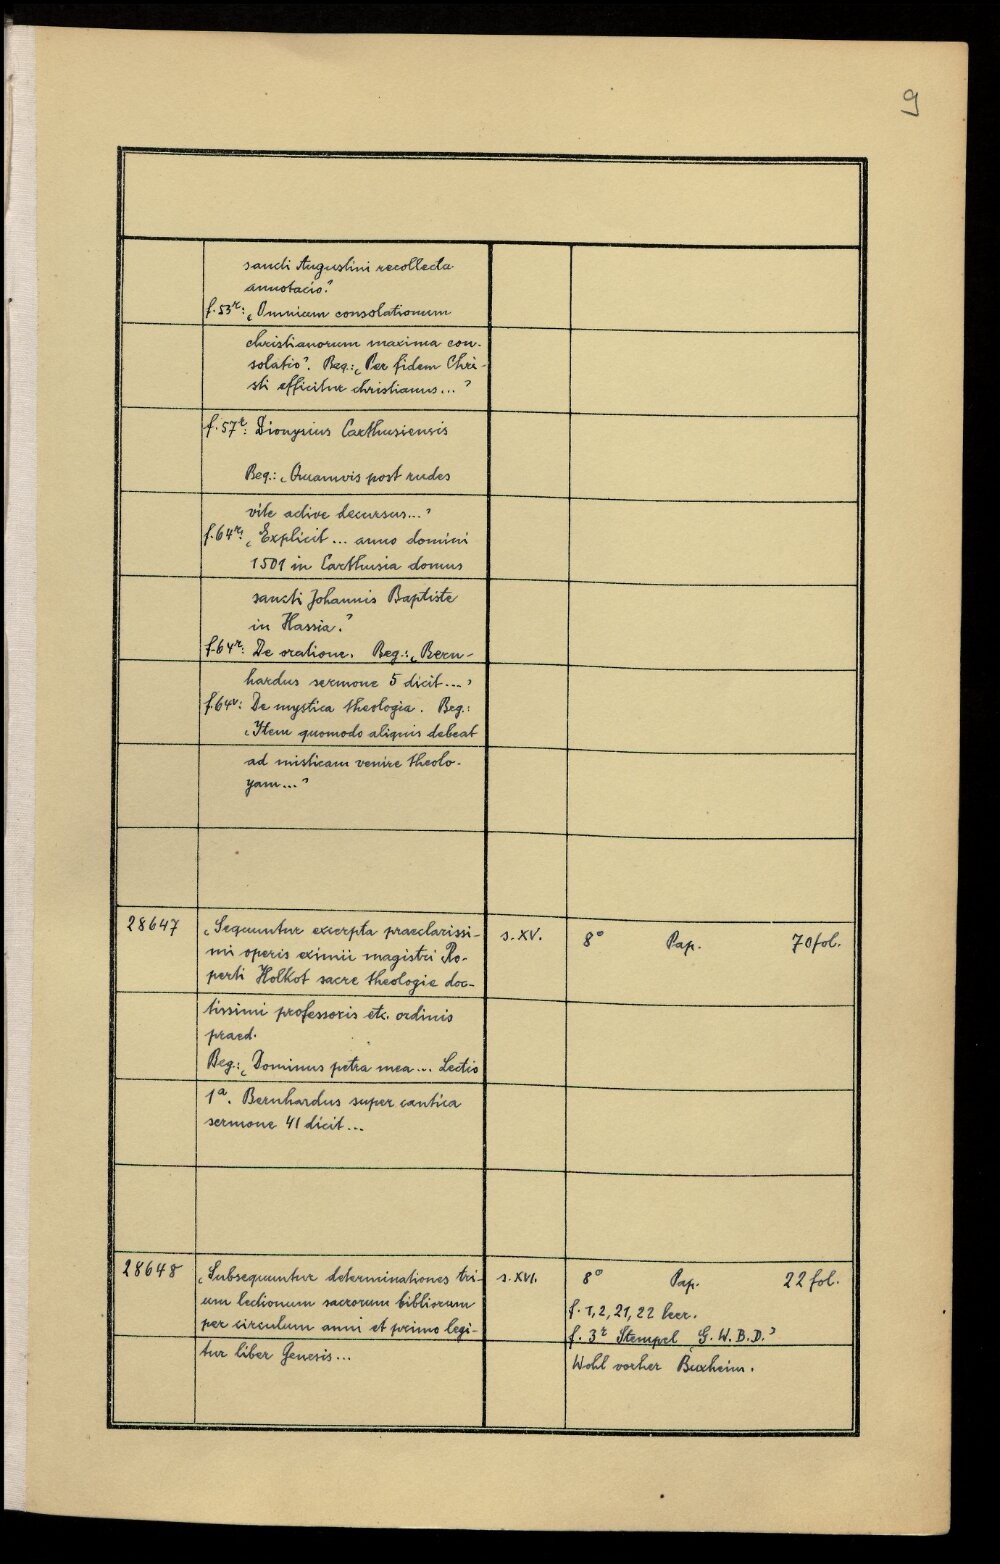 9
sancti Augustini recollecta
annotacio.'
f. 53r: ‚Omnium consolationum
christianorum maxima con-
solatio'. Beg.: ‚Per fidem Chri-
sti efficitur christianus...'
f. 57r: Dionysius Carthusiensis
Beg.: ‚Quamvis post rudes
vite active decursus...'
f. 64r: ‚Explicit ... anno domini
1501 in Carthusia domus
sancti Johannis Baptiste
in Hassia.'
f. 64r: De oratione. Beg.: ‚Bern-
hardus sermone 5 dicit...'
f. 64v: De mystica theologia. Beg.:
‚Item quomodo aliquis debeat
ad misticam venire theolo-
gam...'
28647 ‚Sequuntur excerpta praeclarissi- s. XV. 8° Pap. 70 fol.
mi operis eximii magistri Ro-
perti Holkot sacre theologie doc-
tissimi professoris etc. ordinis
praed.
Beg.: ‚Dominus petra mea... Lectio
1a. Bernhardus super cantica
sermone 41 dicit...
28648 ‚Subsequuntur determinationes tri- s. XVI. 8° Pap. 22 fol.
um lectionum sacrorum bibliorum f. 1, 2, 21, 22 leer.
per circulum anni et primo legi- f. 3r Stempel ‚G. W. B. D.'
tur liber Genesis... Wohl vorher Buxheim.